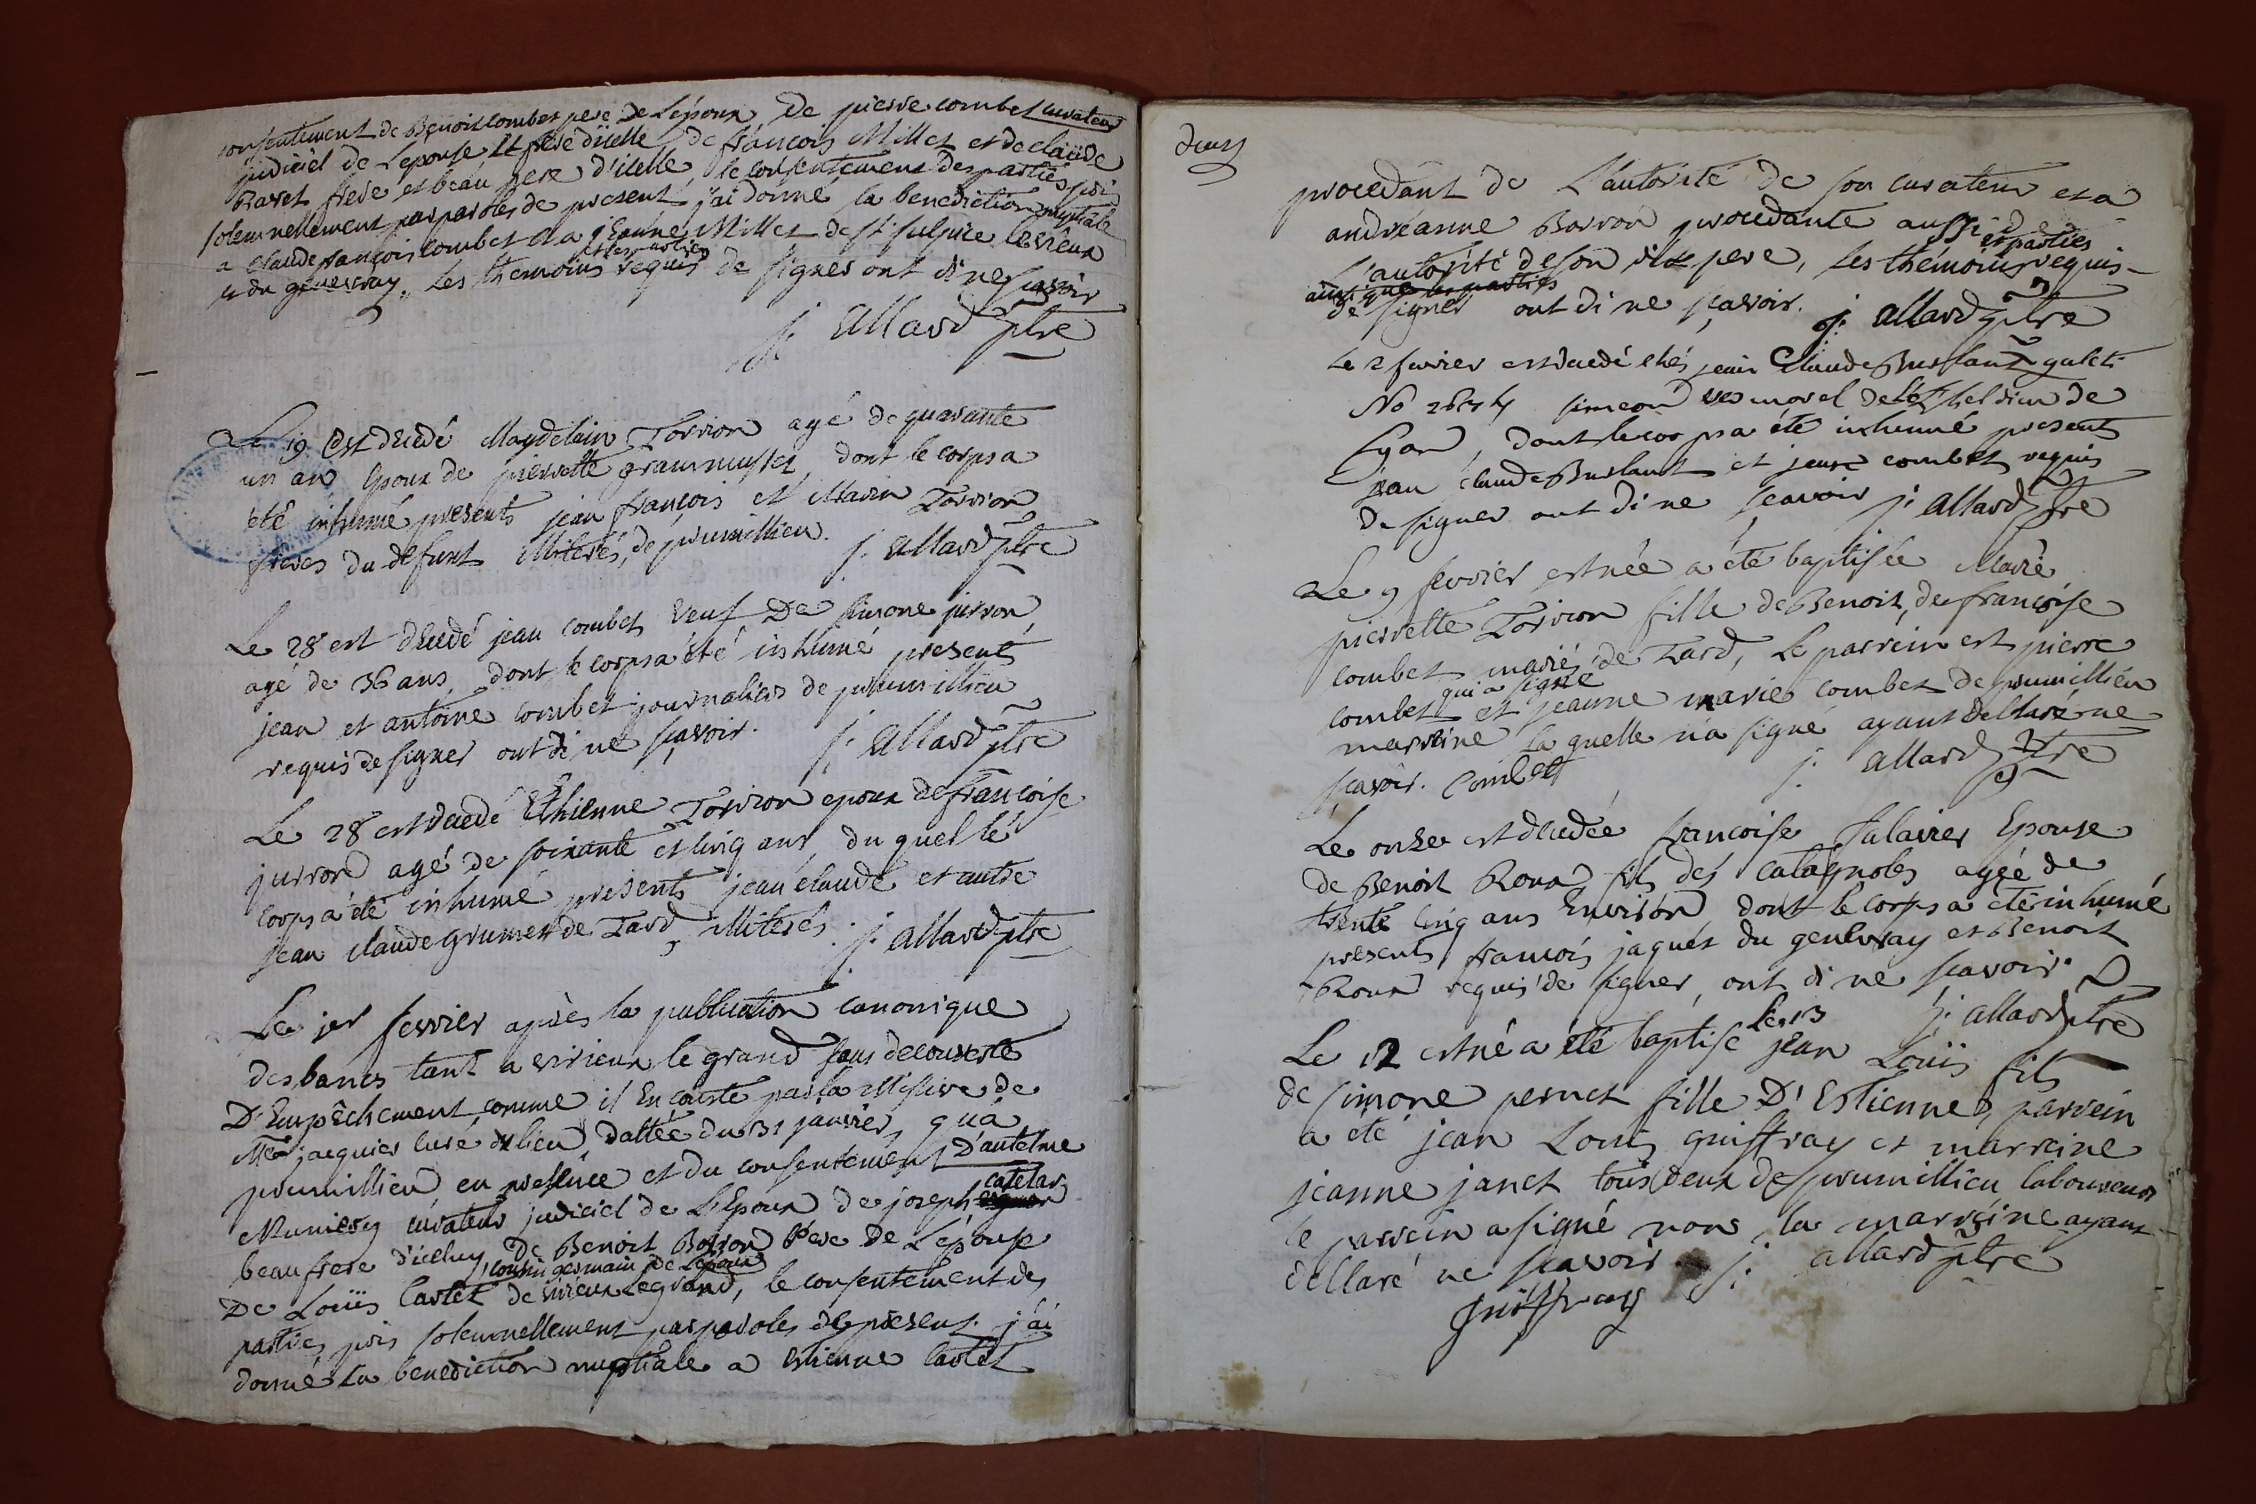 consentement de Benoit Combet pere de L'epoux, de pierre combet curateur
judiciel de Lepouse et frere d'icelle, de françois Millet et de claude
Ravet frere et beau frere d'icelle, le consentement des parties pris
solemnellement par paroles de present, j'ai donné la benediction nuptiale
a claude françois combet et a jeanne Millet de st sulpice le vieux
et les parties
et du genevray. Les themoins requis de signer ont di ne sçavoir
j: allard ptre
Le 19 est decedé Magdelain Torrion agé de quarante
un an Epoux de pierrette grammusset, dont le corps a
eté inhumé presents jean françois et Marin Torrion
freres du defunt illiterés, de prumillieu. j. allard ptre
Le 28 est decedé jean combet veuf De simone jurron,
agé de 36 ans, dont le corps a été inhumé presents
jean et antoine combet journaliers de prumillieu
requis de signer ont di ne sçavoir. j: allard ptre
Le 28 est decedé Ethienne Torrion epoux de françoise
jurron agé de soixante et cinq ans, du quel le
corps a été inhumé presents jean claude et autre
jean claude grumet de Tard illiterés. j: allard ptre
Le jer fevrier après la publication canonique
des bancs tant a virieux le grand sans decouverte
D'Empêchement, comme il En conste par la Missive de
Mre jacquier curé du lieu, dattée du 31 janvier, qu'a
prumillieu, en presence et du consentement D'antelme
catelar
Muniery curateur judiciel de L'Epoux de joseph
beau frere d'iceluy, de Benoit Borron Pere de L'épouse
, cousin germain de L'epoux
De Loüis Carlet de virieux Legrand, le consentement des
parties pris solemnellement par paroles de present. j'ai
donné la benediction nuptiale a Etienne Carlet
deux
procedant de L'autorité de son curateur et a
andréanne Borron procedante aussi de
et parties
L'autorité de son dit pere, les themoins requis
ainsi que les parties
de signer ont di ne sçavoir. j: allard ptre
Le 2 fevrier est decedé chés jean Claude Buslant galet
No simeon morel de L'hotel dieu de
Lyon, dont le corps a été inhumé presents
jean claude Buslant et jean combet requis
de signer ont di ne sçavoir j: allard ptre
Le 9 fevrier est née a été baptisée Marie
pierrette Torrion fille de Benoit, de françoise
combet mariés de Tard, Le parrein est pierre
qui a signé
combet et jeanne marie combet de prumillieu
marreine la quelle n'a signé ayant declaré ne
sçavoir. Combet j. allard ptre
Le onze est decedée françoise Salavier Epouse
de Benoit Roux fils des catagnoles agée de
trente cinq ans Environ, dont le corps a été inhumé
presents françois jaquet du genevray et Benoit
Roux requis de signer, ont di ne sçavoir.
j: allard ptre
Le 13
Le 12 est né a été baptisé jean Loüis fils
de simone pernet fille D'Estienne, parrein
a été jean Louis guiffray et marreine
jeanne janet tous deux de prumillieu laboureurs
le parrein a signé non la marreine ayant
declaré ne sçavoir. j: allard ptre
guiffray